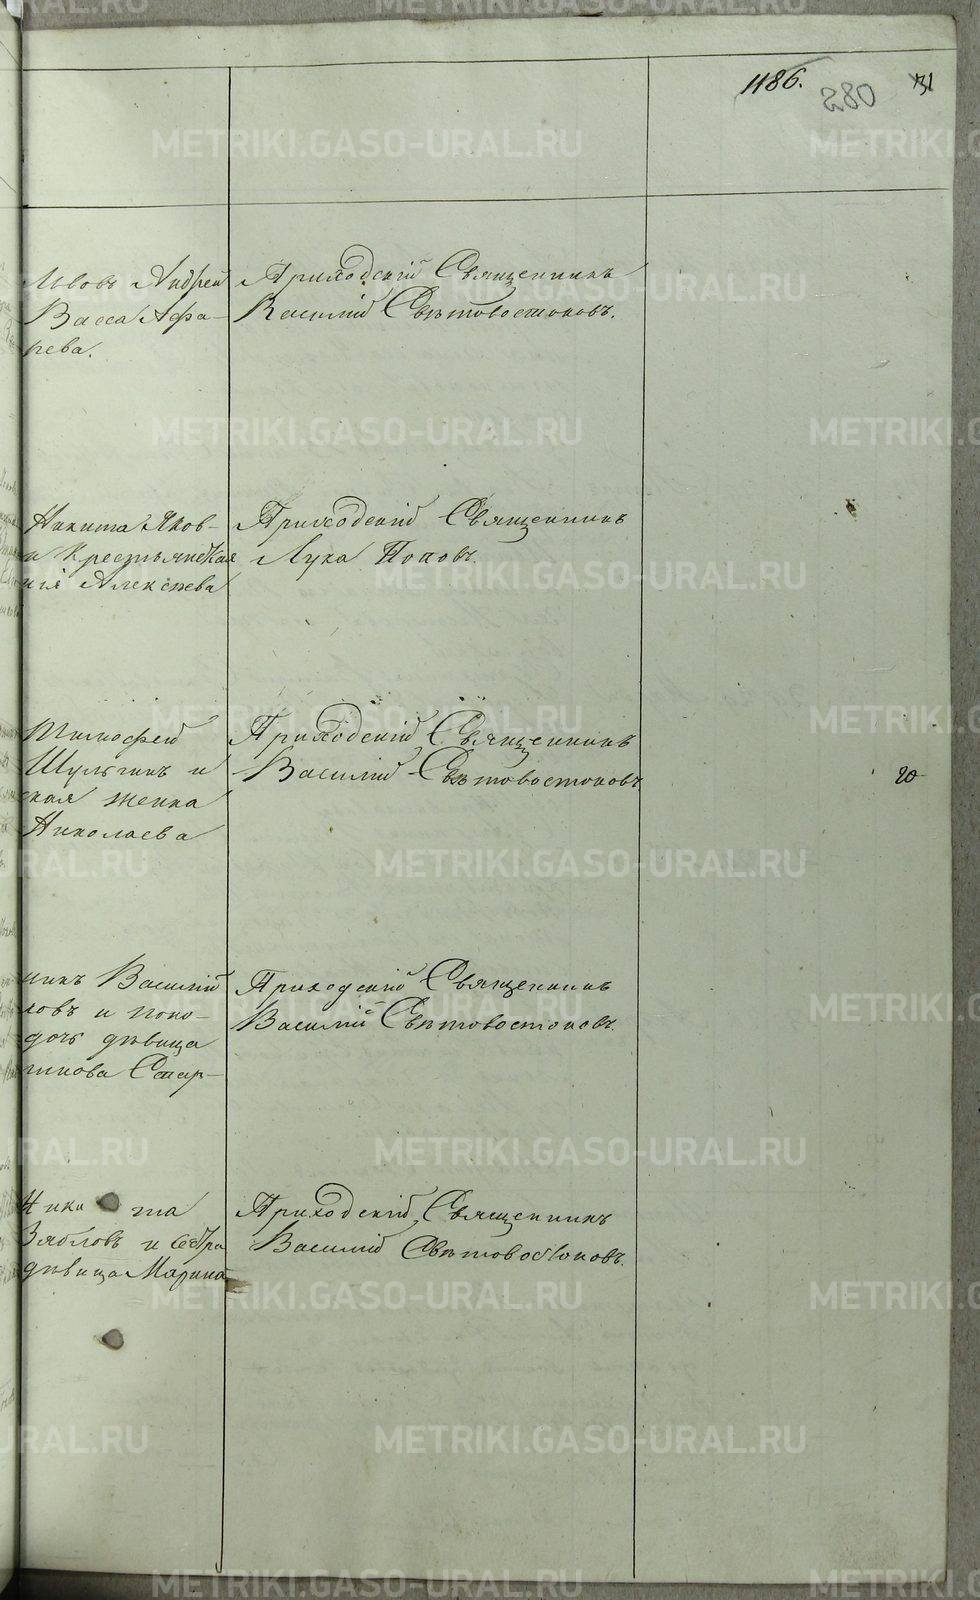 1186.
280
31
Львовъ Андрей
Васса Афа-
рева.
Приходскій Священникъ
Василій Свѣтовостоковъ.
Никита Яков-
а Крестьянская
нія Алексѣева
Приходскій Священникъ
Лука Поповъ.
Тимофей
Шульгинъ и
ская женка
Николаева
Приходскій Священникъ
Василій Свѣтовостоковъ
20
никъ Василий
ловъ и поко-
дочь дѣвица
Стар-
Приходскій Священникъ
Василій Свѣтовостоковъ.
Ники та
Зябловъ и Сестра
дѣвица Марина
Приходскій Священникъ
Василій Свѣтовостоковъ.
METRIKI.GASO-URAL.RU